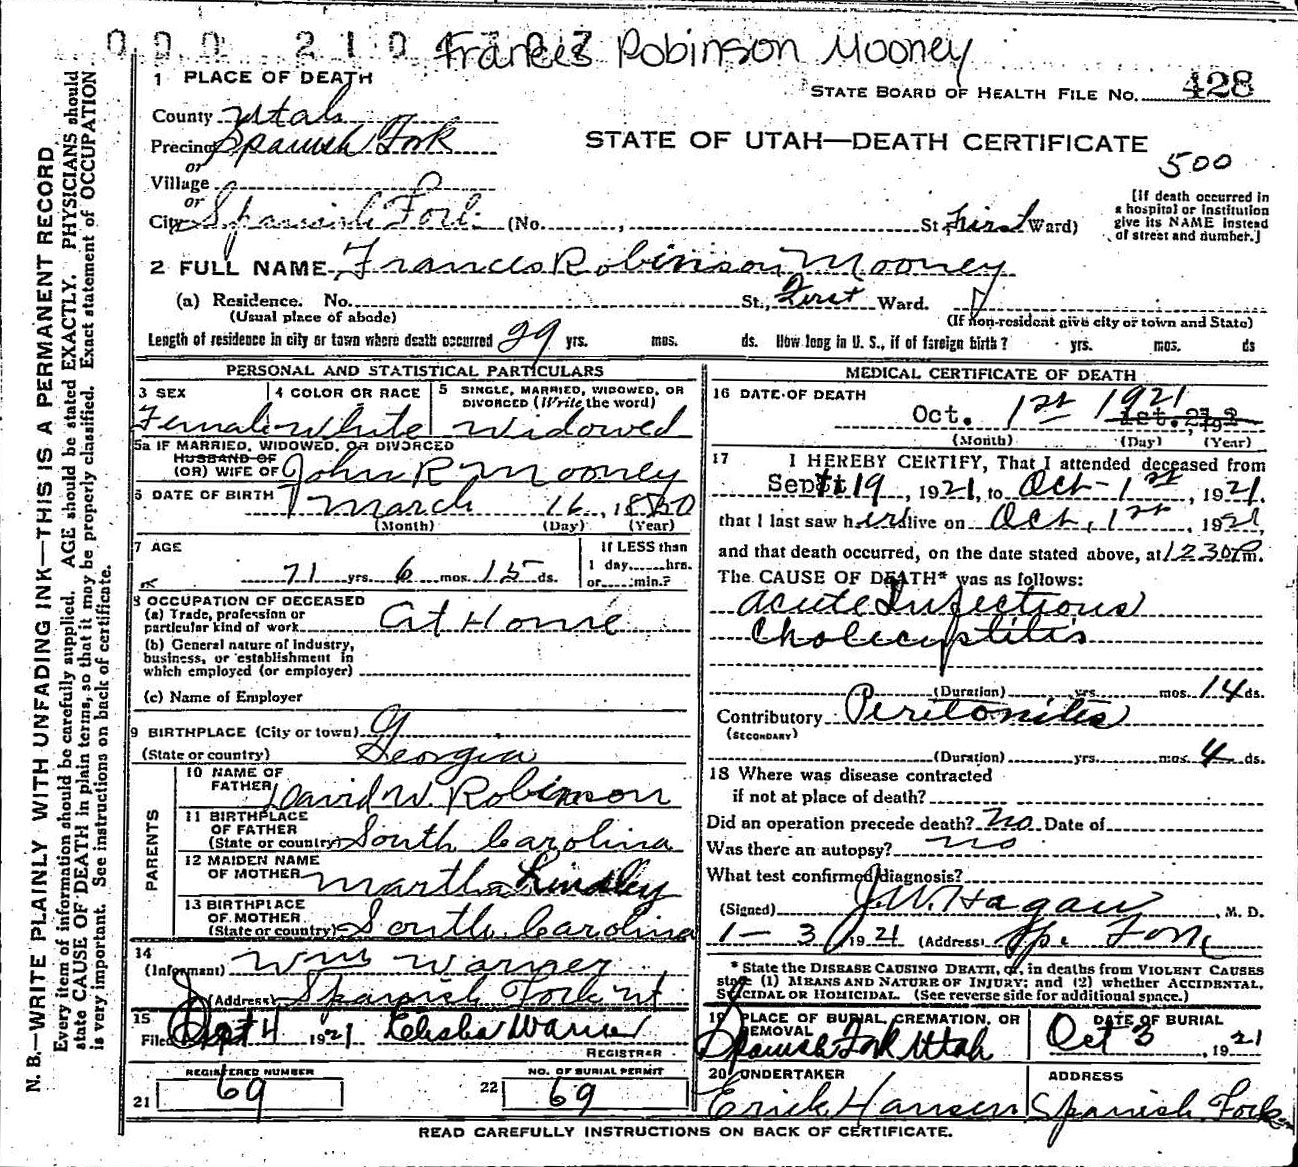 Frances Robinson Mooney
1 PLACE OF DEATH
STATE BOARD OF HEALTH FILE NO. 428
County Utah
Precinct Spanish Fork
STATE OF UTAH—DEATH CERTIFICATE
500
or
Village
or
City Spanish Fork (No. , St., First Ward)
[If death occurred in a hospital or institution give its NAME instead of street and number.]
2 FULL NAME Frances Robinson Mooney
(a) Residence. No. St., First Ward.
(Usual place of abode)
(If non-resident give city or town and State)
Length of residence in city or town where death occurred 29 yrs. mos. ds. How long in U. S., if of foreign birth? yrs. mos. ds
PERSONAL AND STATISTICAL PARTICULARS
3 SEX
Female
4 COLOR OR RACE
White
5 SINGLE, MARRIED, WIDOWED, OR DIVORCED (Write the word)
Widowed
5a IF MARRIED, WIDOWED, OR DIVORCED
HUSBAND OF
(OR) WIFE OF John R Mooney
6 DATE OF BIRTH March 16, 1850
(Month) (Day) (Year)
7 AGE
71 yrs. 6 mos. 15 ds.
If LESS than
1 day,......hrs.
or......min.?
8 OCCUPATION OF DECEASED
(a) Trade, profession or particular kind of work At Home
(b) General nature of industry, business, or establishment in which employed (or employer)
(c) Name of Employer
9 BIRTHPLACE (City or town)
(State or country) Georgia
PARENTS
10 NAME OF FATHER David W. Robinson
11 BIRTHPLACE OF FATHER (State or country) South Carolina
12 MAIDEN NAME OF MOTHER Martha Lindley
13 BIRTHPLACE OF MOTHER (State or country) South Carolina
14
(Informant) Wm Warner
(Address) Spanish Fork Ut
15
Filed Sept 4 1921 Elisha Warner
REGISTRAR
REGISTERED NUMBER
21 69
NO. OF BURIAL PERMIT
22 69
MEDICAL CERTIFICATE OF DEATH
16 DATE OF DEATH
Oct. 1st 1921
(Month) (Day) (Year)
17 I HEREBY CERTIFY, That I attended deceased from
Sept 19, 1921, to Oct - 1st, 1921.
that I last saw her alive on Oct, 1st, 1921,
and that death occurred, on the date stated above, at 1230 P.m.
The CAUSE OF DEATH* was as follows:
Acute Infectious
Cholecystitis
(Duration) yrs. mos. 14 ds.
Contributory Peritonites
(SECONDARY)
(Duration) yrs. mos. 4 ds.
18 Where was disease contracted
if not at place of death?
Did an operation precede death? No Date of
Was there an autopsy? no
What test confirmed diagnosis?
(Signed) J.W. Hagan, M. D.
1 - 3, 1921 (Address) Sp. Fork
* State the DISEASE CAUSING DEATH, or, in deaths from VIOLENT CAUSES
state (1) MEANS AND NATURE OF INJURY; and (2) whether ACCIDENTAL,
SUICIDAL OR HOMICIDAL. (See reverse side for additional space.)
19 PLACE OF BURIAL, CREMATION, OR REMOVAL
Spanish Fork Utah
DATE OF BURIAL
Oct 3, 1921
20 UNDERTAKER
Erick Hansen
ADDRESS
Spanish Fork
READ CAREFULLY INSTRUCTIONS ON BACK OF CERTIFICATE.
N. B.—WRITE PLAINLY WITH UNFADING INK—THIS IS A PERMANENT RECORD
Every item of information should be carefully supplied. AGE should be stated EXACTLY. PHYSICIANS should
state CAUSE OF DEATH in plain terms, so that it may be properly classified. Exact statement of OCCUPATION
is very important. See instructions on back of certificate.